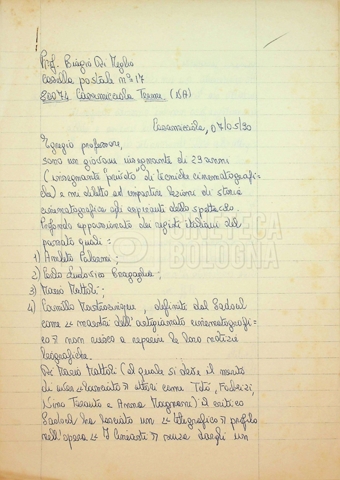 Prof. Biagio Di Meglio
Casella postale n° 17
80074 Casamicciola Terme (NA)
Casamicciola, 07/05/90
Egregio professore,
sono un giovane insegnante di 29 anni
(insegnante privato di tecniche cinematografi-
che) e mi diletto ad impartire lezioni di storia
cinematografica agli aspiranti dello spettacolo.
Profondo appassionato dei registi italiani del
passato quali:
1) Amleto Palermi;
2) Carlo Ludovico Bragaglia;
3) Mario Mattoli;
4) Camillo Mastrocinque, definito dal Sadoul
come « maestri dell'artigianato cinematografi-
co » non riesco a reperire le loro notizie
biografiche.
Di Mario Mattoli (al quale si deve il merito
di aver « lanciato » attori come Totò, Fabrizi,
Nino Taranto e Anna Magnani) il critico
Sadoul ha lasciato un « telegrafico » profilo
nell'opera « I Cineasti » senza dargli un
CINETECA
BOLOGNA